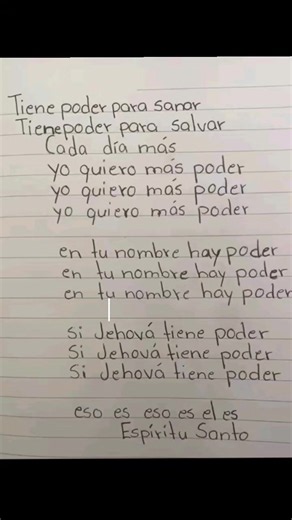 Tiene poder para sanar
Tiene poder para salvar
Cada día más
yo quiero más poder
yo quiero más poder
yo quiero más poder
en tu nombre hay poder
en tu nombre hay poder
en tu nombre hay poder
si Jehová tiene poder
Si Jehová tiene poder
Si Jehová tiene poder
eso es eso es el es
Espíritu Santo